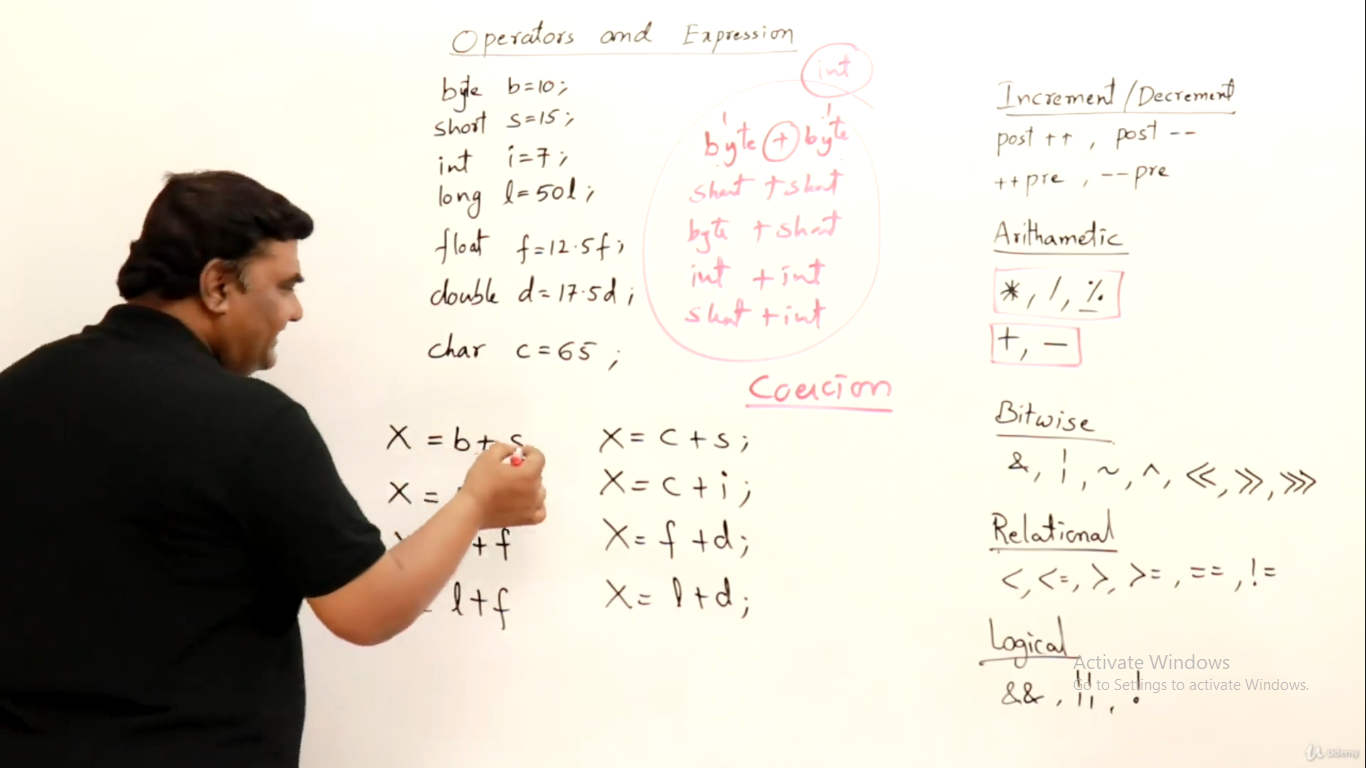 Operators and Expression
byte b=10;
short s=15;
int i=7;
long l=50l;
float f=12.5f;
double d=17.5d;
char c=65;
int
byte + byte
short + short
byte + short
int + int
short + int
Coercion
X = b+s
X =
+f
= l+f
X= c+s;
X= c+i;
X= f+d;
X= l+d;
Increment/Decrement
post ++, post --
++pre, --pre
Arithametic
*, /, %
+, -
Bitwise
&, |, ~, ^, <<, >>, >>>
Relational
<, <=, >, >=, ==, !=
Logical
&&, ||, !
Activate Windows
Go to Settings to activate Windows.
Udemy